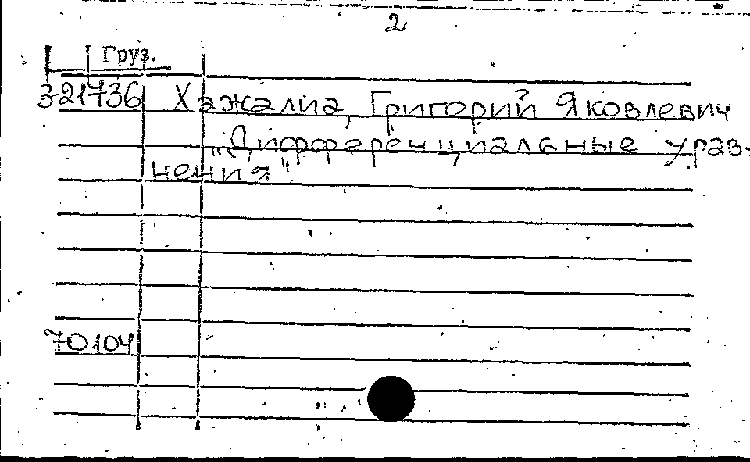 2
Груз.
321736 Хажалиа, Григорий Яковлевич
"Дифференциальные урав-
нения"
70104